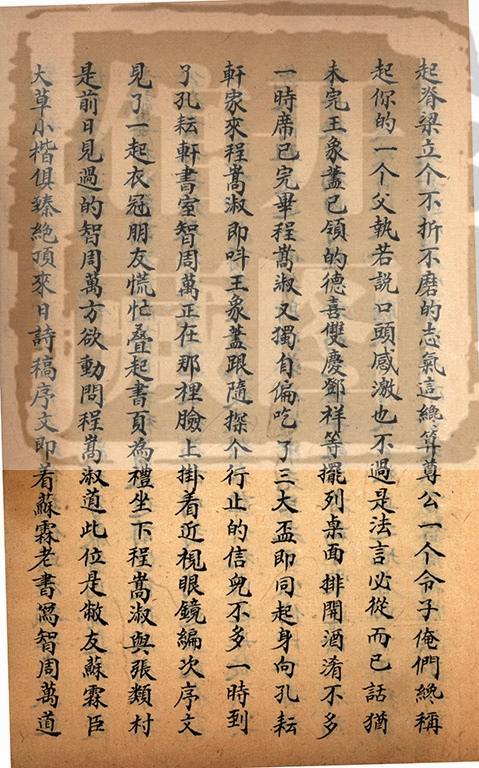 起脊梁立个不折不磨的志氣這纔算尊公一个令子俺們纔稱
起你的一个父執若説口頭感激也不過是法言必從而已話猶
未完王象藎已領的德喜雙慶鄧祥等擺列桌面排開酒淆不多
一時席已完畢程嵩淑又獨自偏吃了三大盃即同起身向孔耘
軒家來程嵩淑即呌王象藎跟隨探个行止的信兒不多一時到
了孔耘軒書室智周萬正在那裡臉上掛着近視眼鏡編次序文
見了一起衣冠朋友慌忙叠起書頁為禮坐下程嵩淑與張類村
是前日見過的智周萬方欲動問程嵩淑道此位是敝友蘇霖臣
大草小楷俱臻絶頂來日詩稿序文即着蘇霖老書寫智周萬道